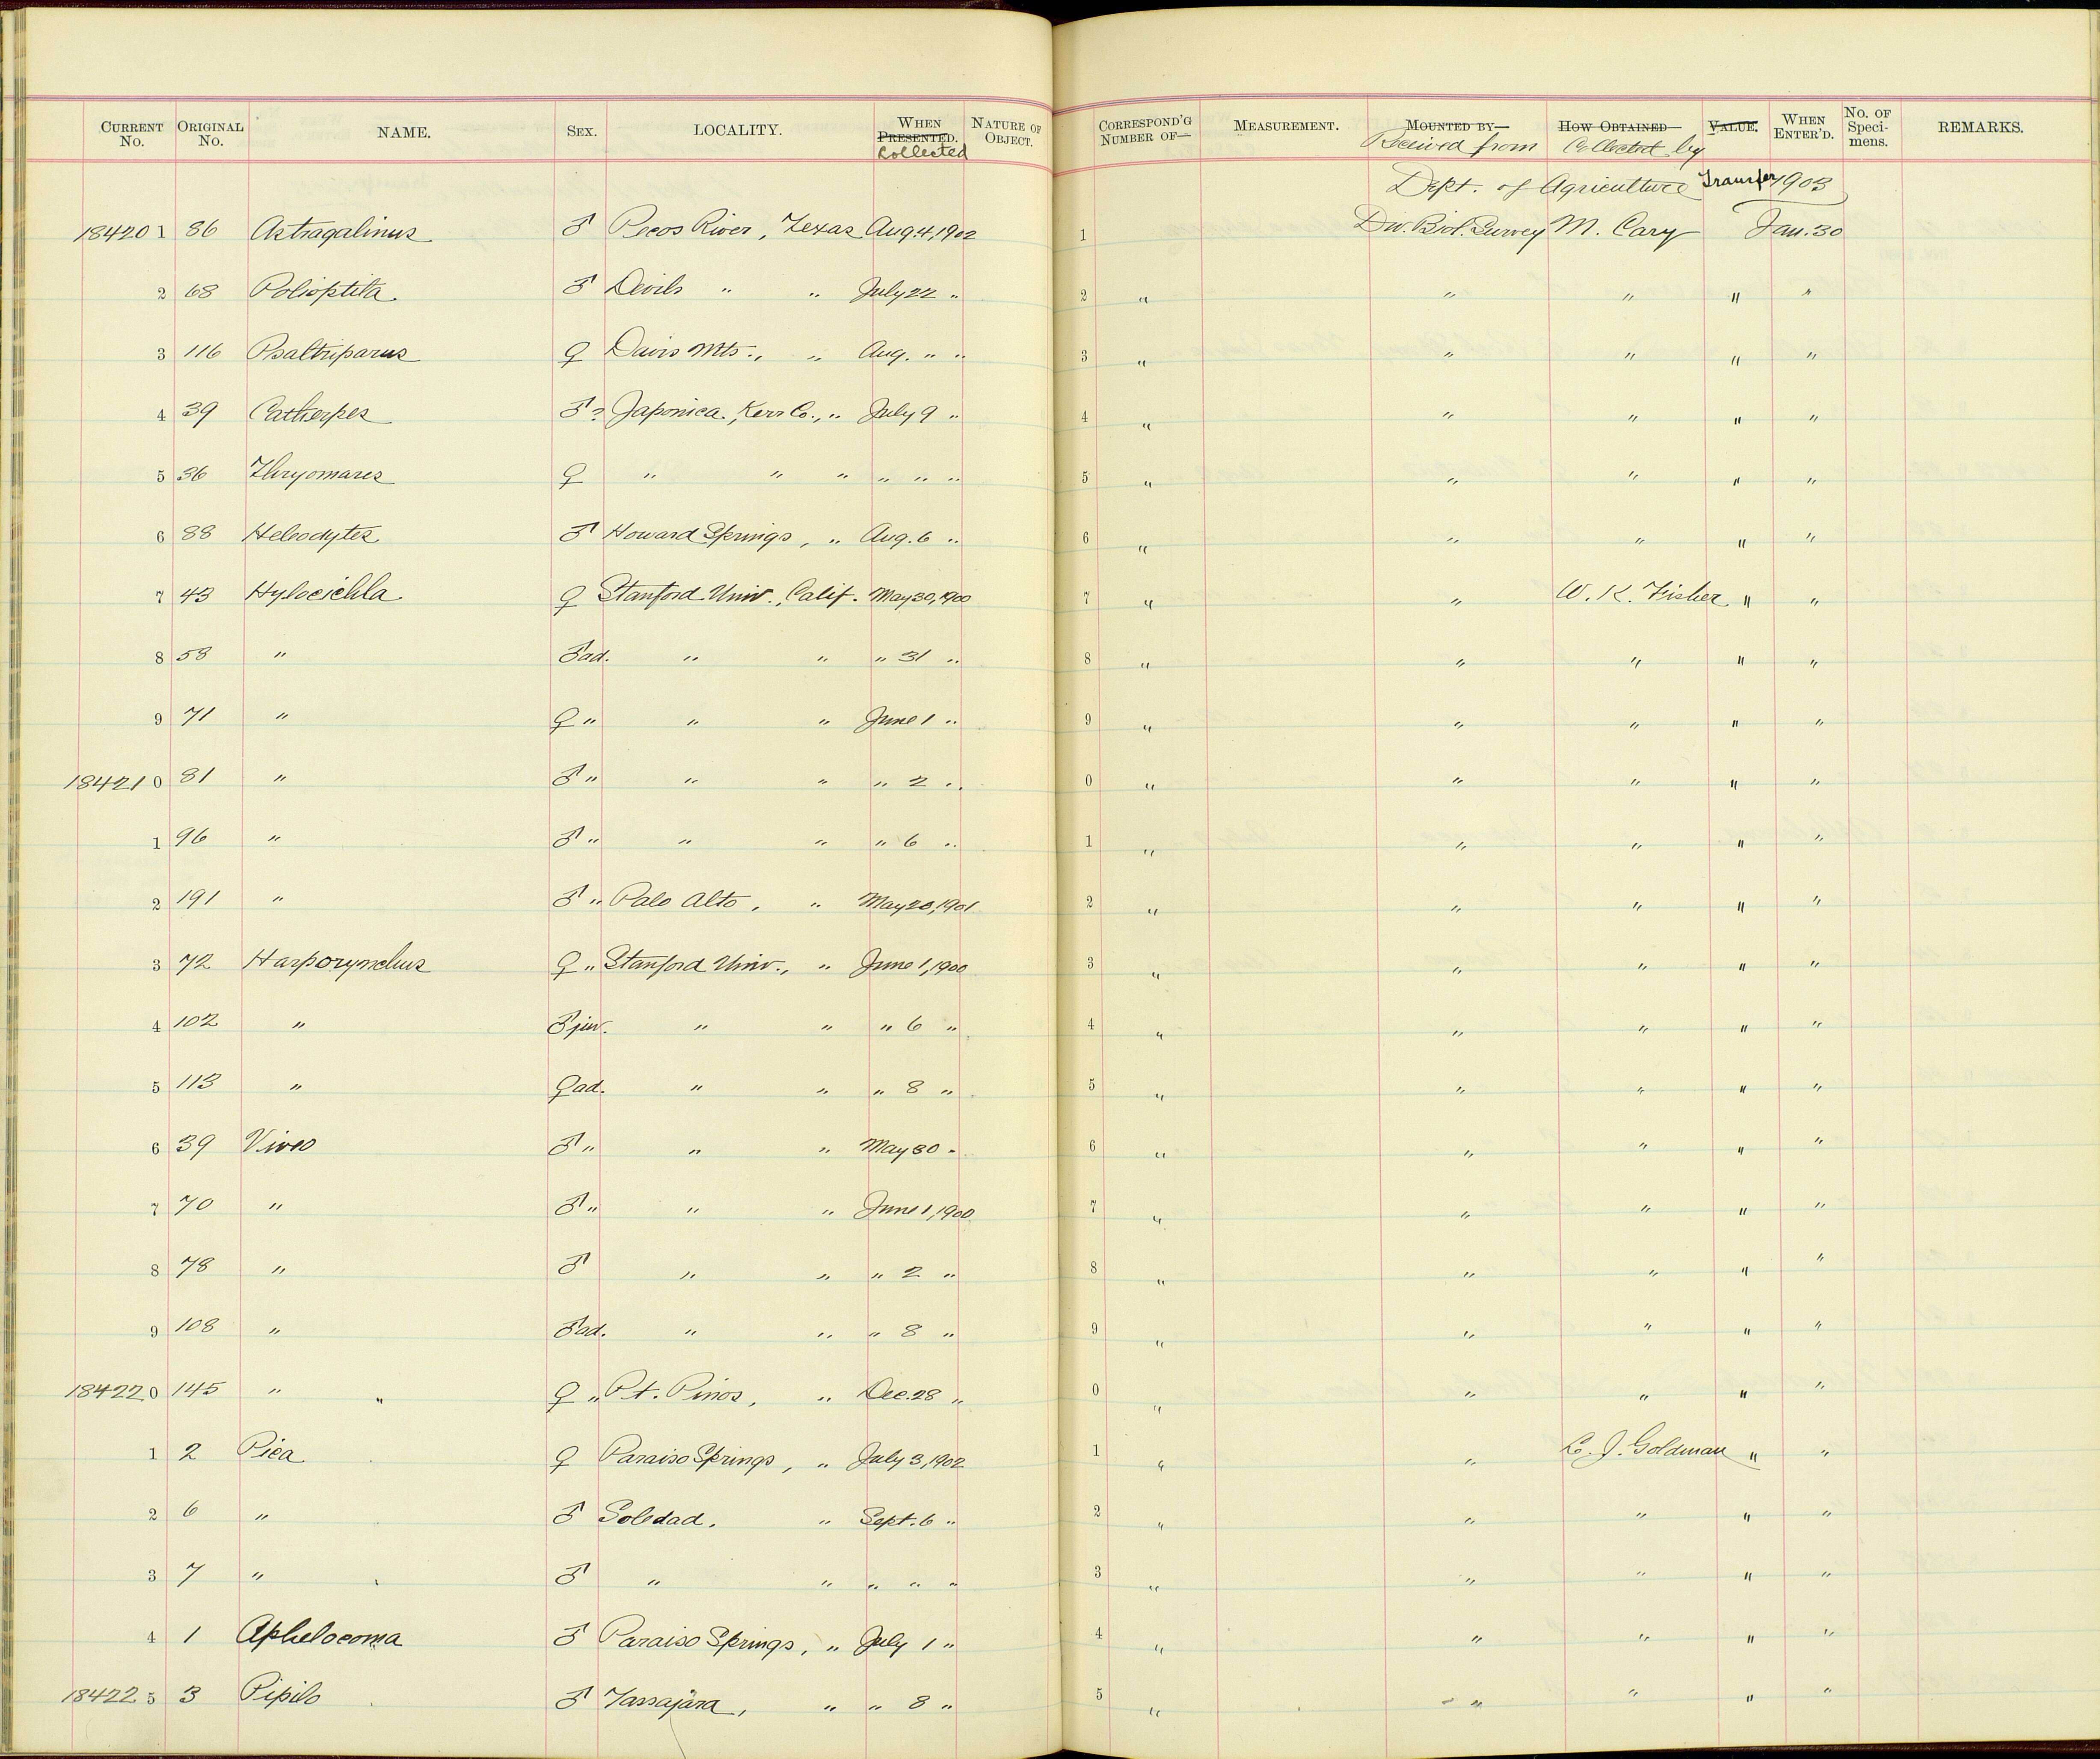 CURRENT No. ORIGINAL No. NAME. SEX. LOCALITY. WHEN PRESENTED. Collected NATURE OF OBJECT. CORRESPOND'G NUMBER OF— MEASUREMENT. MOUNTED BY— Received from HOW OBTAINED— Collected by VALUE. WHEN ENTER'D. No. OF Speci-mens. REMARKS.
Dept. of Agriculture Transfer 1903
184201 86 Astragalinus ♂ Pecos River, Texas Aug. 4, 1902 1 Div. Biol. Survey M. Cary Jan. 30
2 68 Polioptila ♂ Devils " " July 22 " 2 " " " " "
3 116 Psaltriparus ♀ Davis Mts., " Aug. " " 3 " " " " "
4 39 Catherpes ♂? Japonica, Kerr Co., " July 9 " 4 " " " " "
5 36 Thryomanes ♀ " " " " " " 5 " " " " "
6 88 Heleodytes ♂ Howard Springs, " Aug. 6 " 6 " " " " "
7 43 Hylocichla ♀ Stanford Univ., Calif. May 30, 1900 7 " " W. K. Fisher " "
8 58 " ♂ ad. " " " 31 " 8 " " " " "
9 71 " ♀ " " " June 1 " 9 " " " " "
184210 81 " ♂ " " " " 2 " 0 " " " " "
1 96 " ♂ " " " " 6 " 1 " " " " "
2 191 " ♂ " Palo Alto, " May 20, 1901 2 " " " " "
3 72 Harporynchus ♀ " Stanford Univ., " June 1, 1900 3 " " " " "
4 102 " ♂ juv. " " " 6 " 4 " " " " "
5 113 " ♀ ad. " " " 8 " 5 " " " " "
6 39 Vireo ♂ " " " May 30 " 6 " " " " "
7 70 " ♂ " " " June 1, 1900 7 " " " " "
8 78 " ♂ " " " 2 " 8 " " " " "
9 108 " ♂ ad. " " " 8 " 9 " " " " "
184220 145 " " ♀ " Pt. Pinos, " Dec. 28 " 0 " " " " "
1 2 Pica ♀ Paraiso Springs, " July 3, 1902 1 " " J. Goldman " "
2 6 " ♂ Soledad, " Sept. 6 " 2 " " " " "
3 7 " ♂ " " " " " 3 " " " " "
4 1 Aphelocoma ♂ Paraiso Springs, " July 1 " 4 " " " " "
184225 3 Pipilo ♂ Tassajara, " " 8 " 5 " " " " "